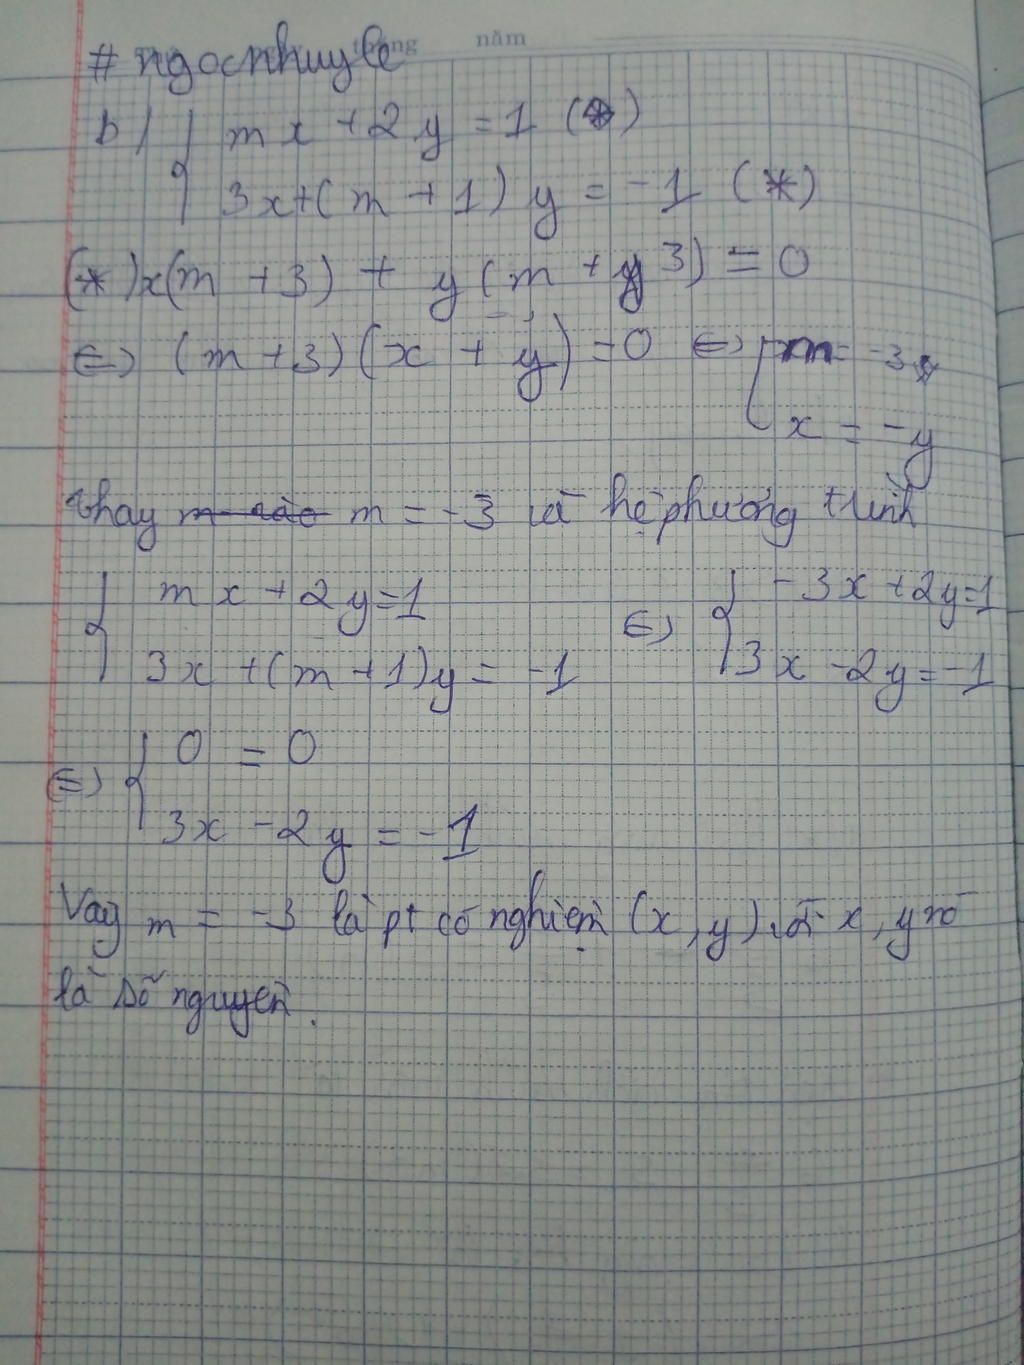 năm
# ngocnhuyle
b) { mx + 2y = 1 (*)
3x + (m + 1) y = -1 (*)
(*) x(m + 3) + y(m + 3) = 0
⇔ (m + 3)(x + y) = 0 ⇔ [ m = -3
x = -y
thay m = -3 và hệ phương trình
{ mx + 2y = 1 ⇔ { -3x + 2y = 1
3x + (m + 1)y = -1 3x - 2y = -1
⇔ { 0 = 0
3x - 2y = -1
Vậy m = -3 là pt có nghiệm (x, y) với x, y
là số nguyên.